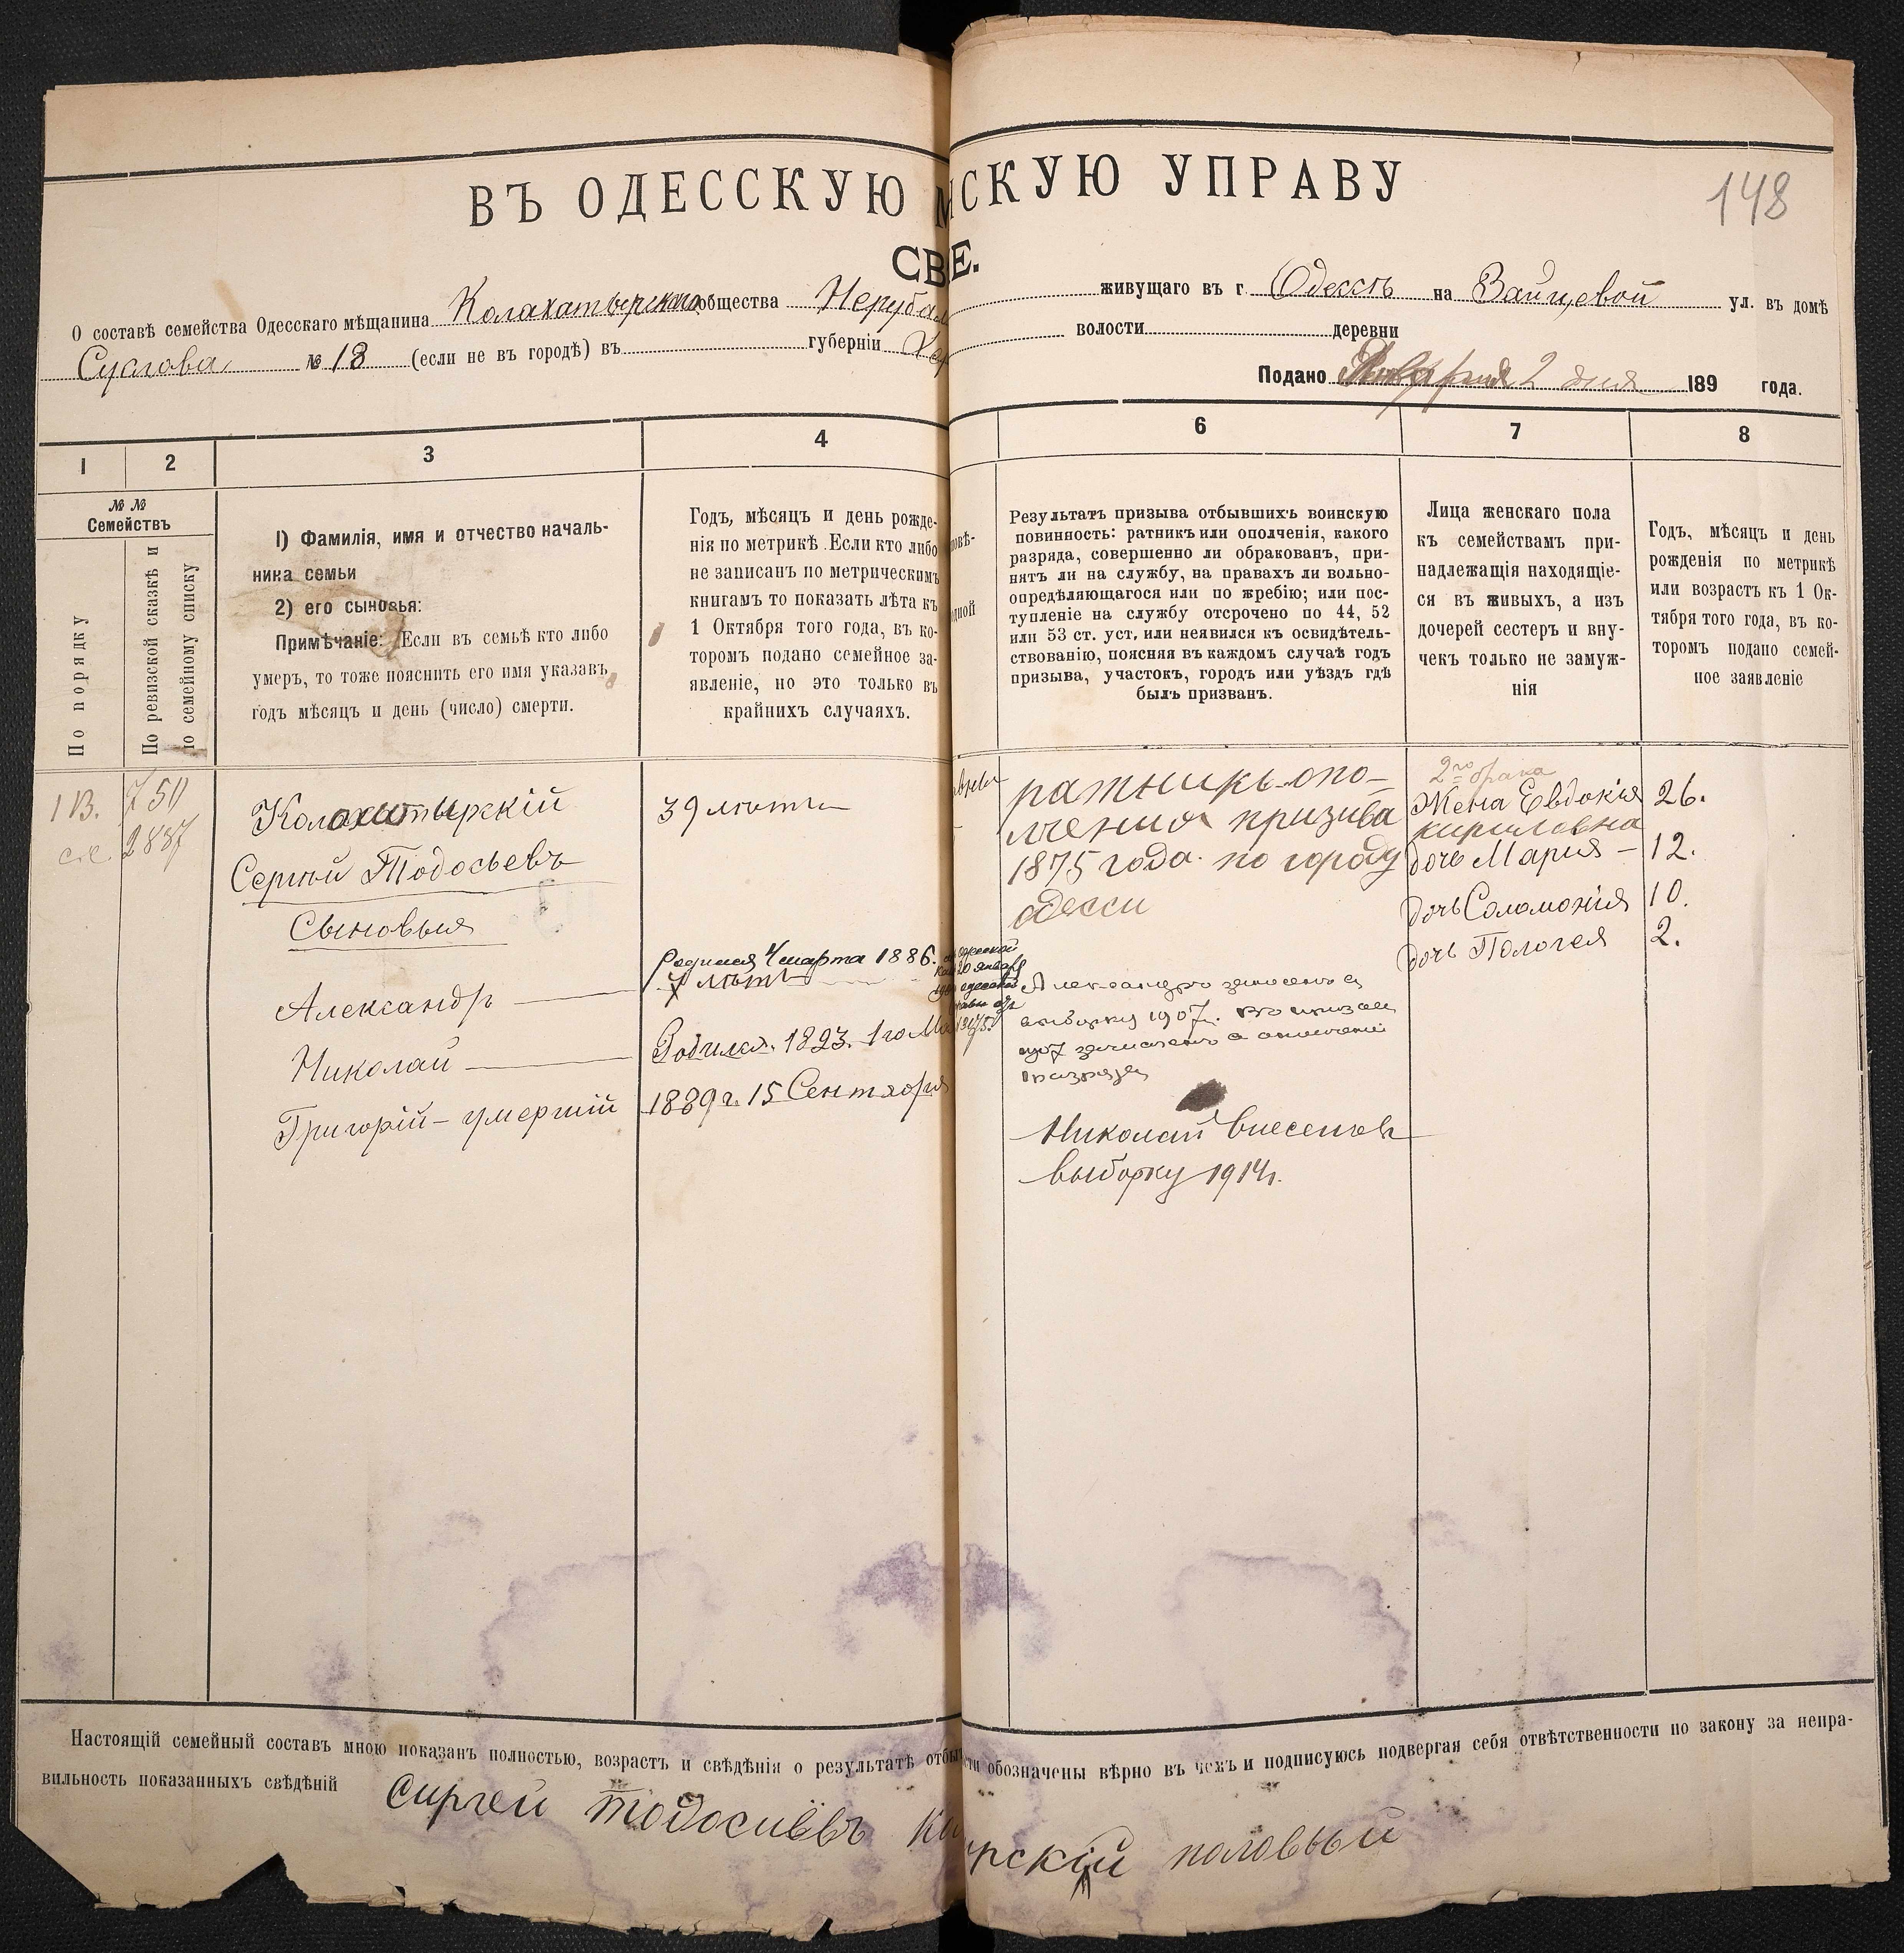 148
ВЪ ОДЕССКУЮ СКУЮ УПРАВУ
СВЕ.
О составѣ семейства Одесскаго мѣщанина общества живущаго въ г. Одессѣ на Зайцевой ул. въ домѣ
№ 18 (если не въ городѣ) въ губерніи волости деревни
Подано Января 2 дня 189 года.
1 2 3 4 6 7 8
№ № Семействъ
По порядку
По ревизской сказкѣ и
по семейному списку
1) Фамилія, имя и отчество началь-
ника семьи
2) его сыновья:
Примѣчаніе: Если въ семьѣ кто либо
умеръ, то тоже пояснить его имя указавъ
годъ мѣсяцъ и день (число) смерти.
Годъ, мѣсяцъ и день рожде-
нія по метрикѣ. Если кто либо
не записанъ по метрическимъ
книгамъ то показать лѣта къ
1 Октября того года, въ ко-
торомъ подано семейное за-
явленіе, но это только въ
крайнихъ случаяхъ.
Результатъ призыва отбывшихъ воинскую
повинность: ратникъ или ополченія, какого
разряда, совершенно ли обракованъ, при-
нятъ ли на службу, на правахъ ли вольно-
опредѣляющагося или по жребію; или пос-
тупленіе на службу отсрочено по 44, 52
или 53 ст. уст. или неявился къ освидѣтель-
ствованію, поясняя въ каждомъ случаѣ годъ
призыва, участокъ, городъ или уѣздъ гдѣ
былъ призванъ.
Лица женскаго пола
къ семействамъ при-
надлежащія находящіе-
ся въ живыхъ, а изъ
дочерей сестеръ и вну-
чекъ только не замуж-
нія
Годъ, мѣсяцъ и день
рожденія по метрикѣ
или возрастъ къ 1 Ок-
тября того года, въ ко-
торомъ подано семей-
ное заявленіе
1 В. 750
2887
Колахатырскій
Сергѣй Тодосьевъ
Сыновья
Александръ
Николай
Григорій – умершій
39 лѣтъ
родился 4 марта 1886.
7 лѣтъ
Родился. 1893. 1го
1889 г. 15 Сентября
ратникъ опо-
лченія призыва
1875 года. по городу
одессы
Александръ занесенъ въ
выборку 1907г.
1907 зачисленъ въ ополченіе
Николай внесенъ въ
выборку 1914г.
2го брака
Жена Евдокія 26.
кириловна
дочь Мария – 12.
дочь Соломонія 10.
дочь Пологея 2.
Настоящій семейный составъ мною показанъ полностью, возрастъ и свѣдѣнія о результатѣ обозначены вѣрно въ чемъ и подписуюсь подвергая себя отвѣтственности по закону за непра-
вильность показанныхъ свѣдѣній
Сиргей Тодосиевъ